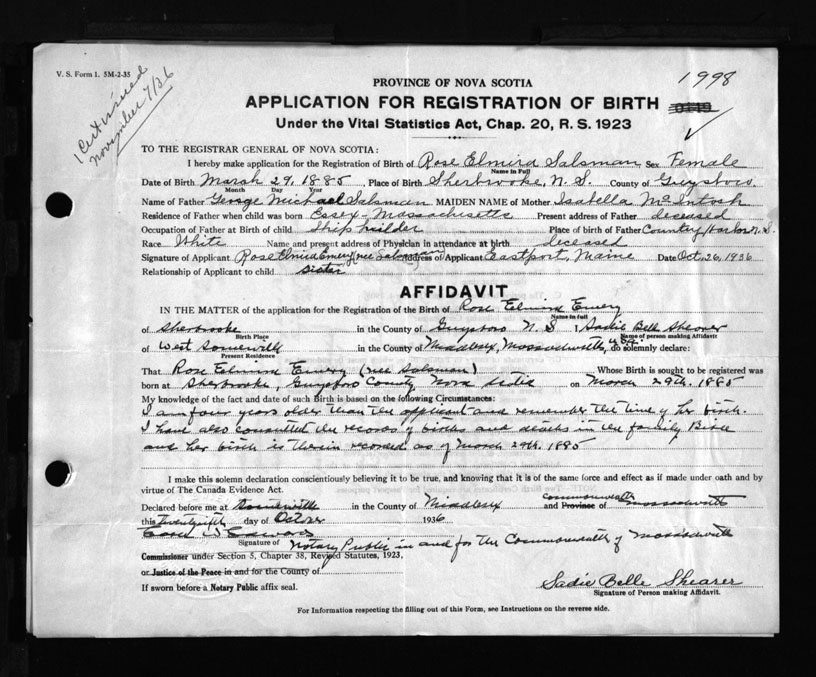 V. S. Form 1. 5M-2-35
1998
1 Cert issued
November 7/36
PROVINCE OF NOVA SCOTIA
APPLICATION FOR REGISTRATION OF BIRTH
Under the Vital Statistics Act, Chap. 20, R. S. 1923
TO THE REGISTRAR GENERAL OF NOVA SCOTIA:
I hereby make application for the Registration of Birth of Rose Elmira Salsman Sex Female
Name in Full
Date of Birth March 29, 1885, Place of Birth Sherbrooke, N. S. County of Guysboro.
Month Day Year
Name of Father George Michael Salsman MAIDEN NAME of Mother Isabella McIntosh
Residence of Father when child was born Essex - Massachusetts Present address of Father deceased
Occupation of Father at Birth of child Ship builder Place of birth of Father Country Harbor N.S.
Race White Name and present address of Physician in attendance at birth deceased
Signature of Applicant Rose Elmira Emery (nee Salsman) Address of Applicant Eastport, Maine Date Oct, 26, 1936
Relationship of Applicant to child sister
AFFIDAVIT
IN THE MATTER of the application for the Registration of the Birth of Rose Elmira Emery
Name in full
of Sherbrooke in the County of Guysboro N. S. I Sadie Bell Shearer
Birth Place Name of person making Affidavit
of West Somerville in the County of Middlesex, Massachusetts, U.S.A. do solemnly declare:
Present Residence
That Rose Elmira Emery (nee Salsman) Whose Birth is sought to be registered was
born at Sherbrooke, Guysboro County, Nova Scotia on March 29th. 1885
My knowledge of the fact and date of such Birth is based on the following Circumstances:
I am four years older than the applicant and remember the time of her birth.
I have also consulted the records of births and deaths in the family Bible
and her birth is therein recorded as of March 29th. 1885
I make this solemn declaration conscientiously believing it to be true, and knowing that it is of the same force and effect as if made under oath and by
virtue of The Canada Evidence Act.
Declared before me at Somerville in the County of Middlesex and Province of Commonwealth Massachusetts
this twenty sixth day of October 1936
Signature of Notary Public in and for the Commonwealth of Massachusetts
Commissioner under Section 5, Chapter 38, Revised Statutes, 1923,
or Justice of the Peace in and for the County of
If sworn before a Notary Public affix seal.
Sadie Belle Shearer
Signature of Person making Affidavit.
For Information respecting the filling out of this Form, see Instructions on the reverse side.